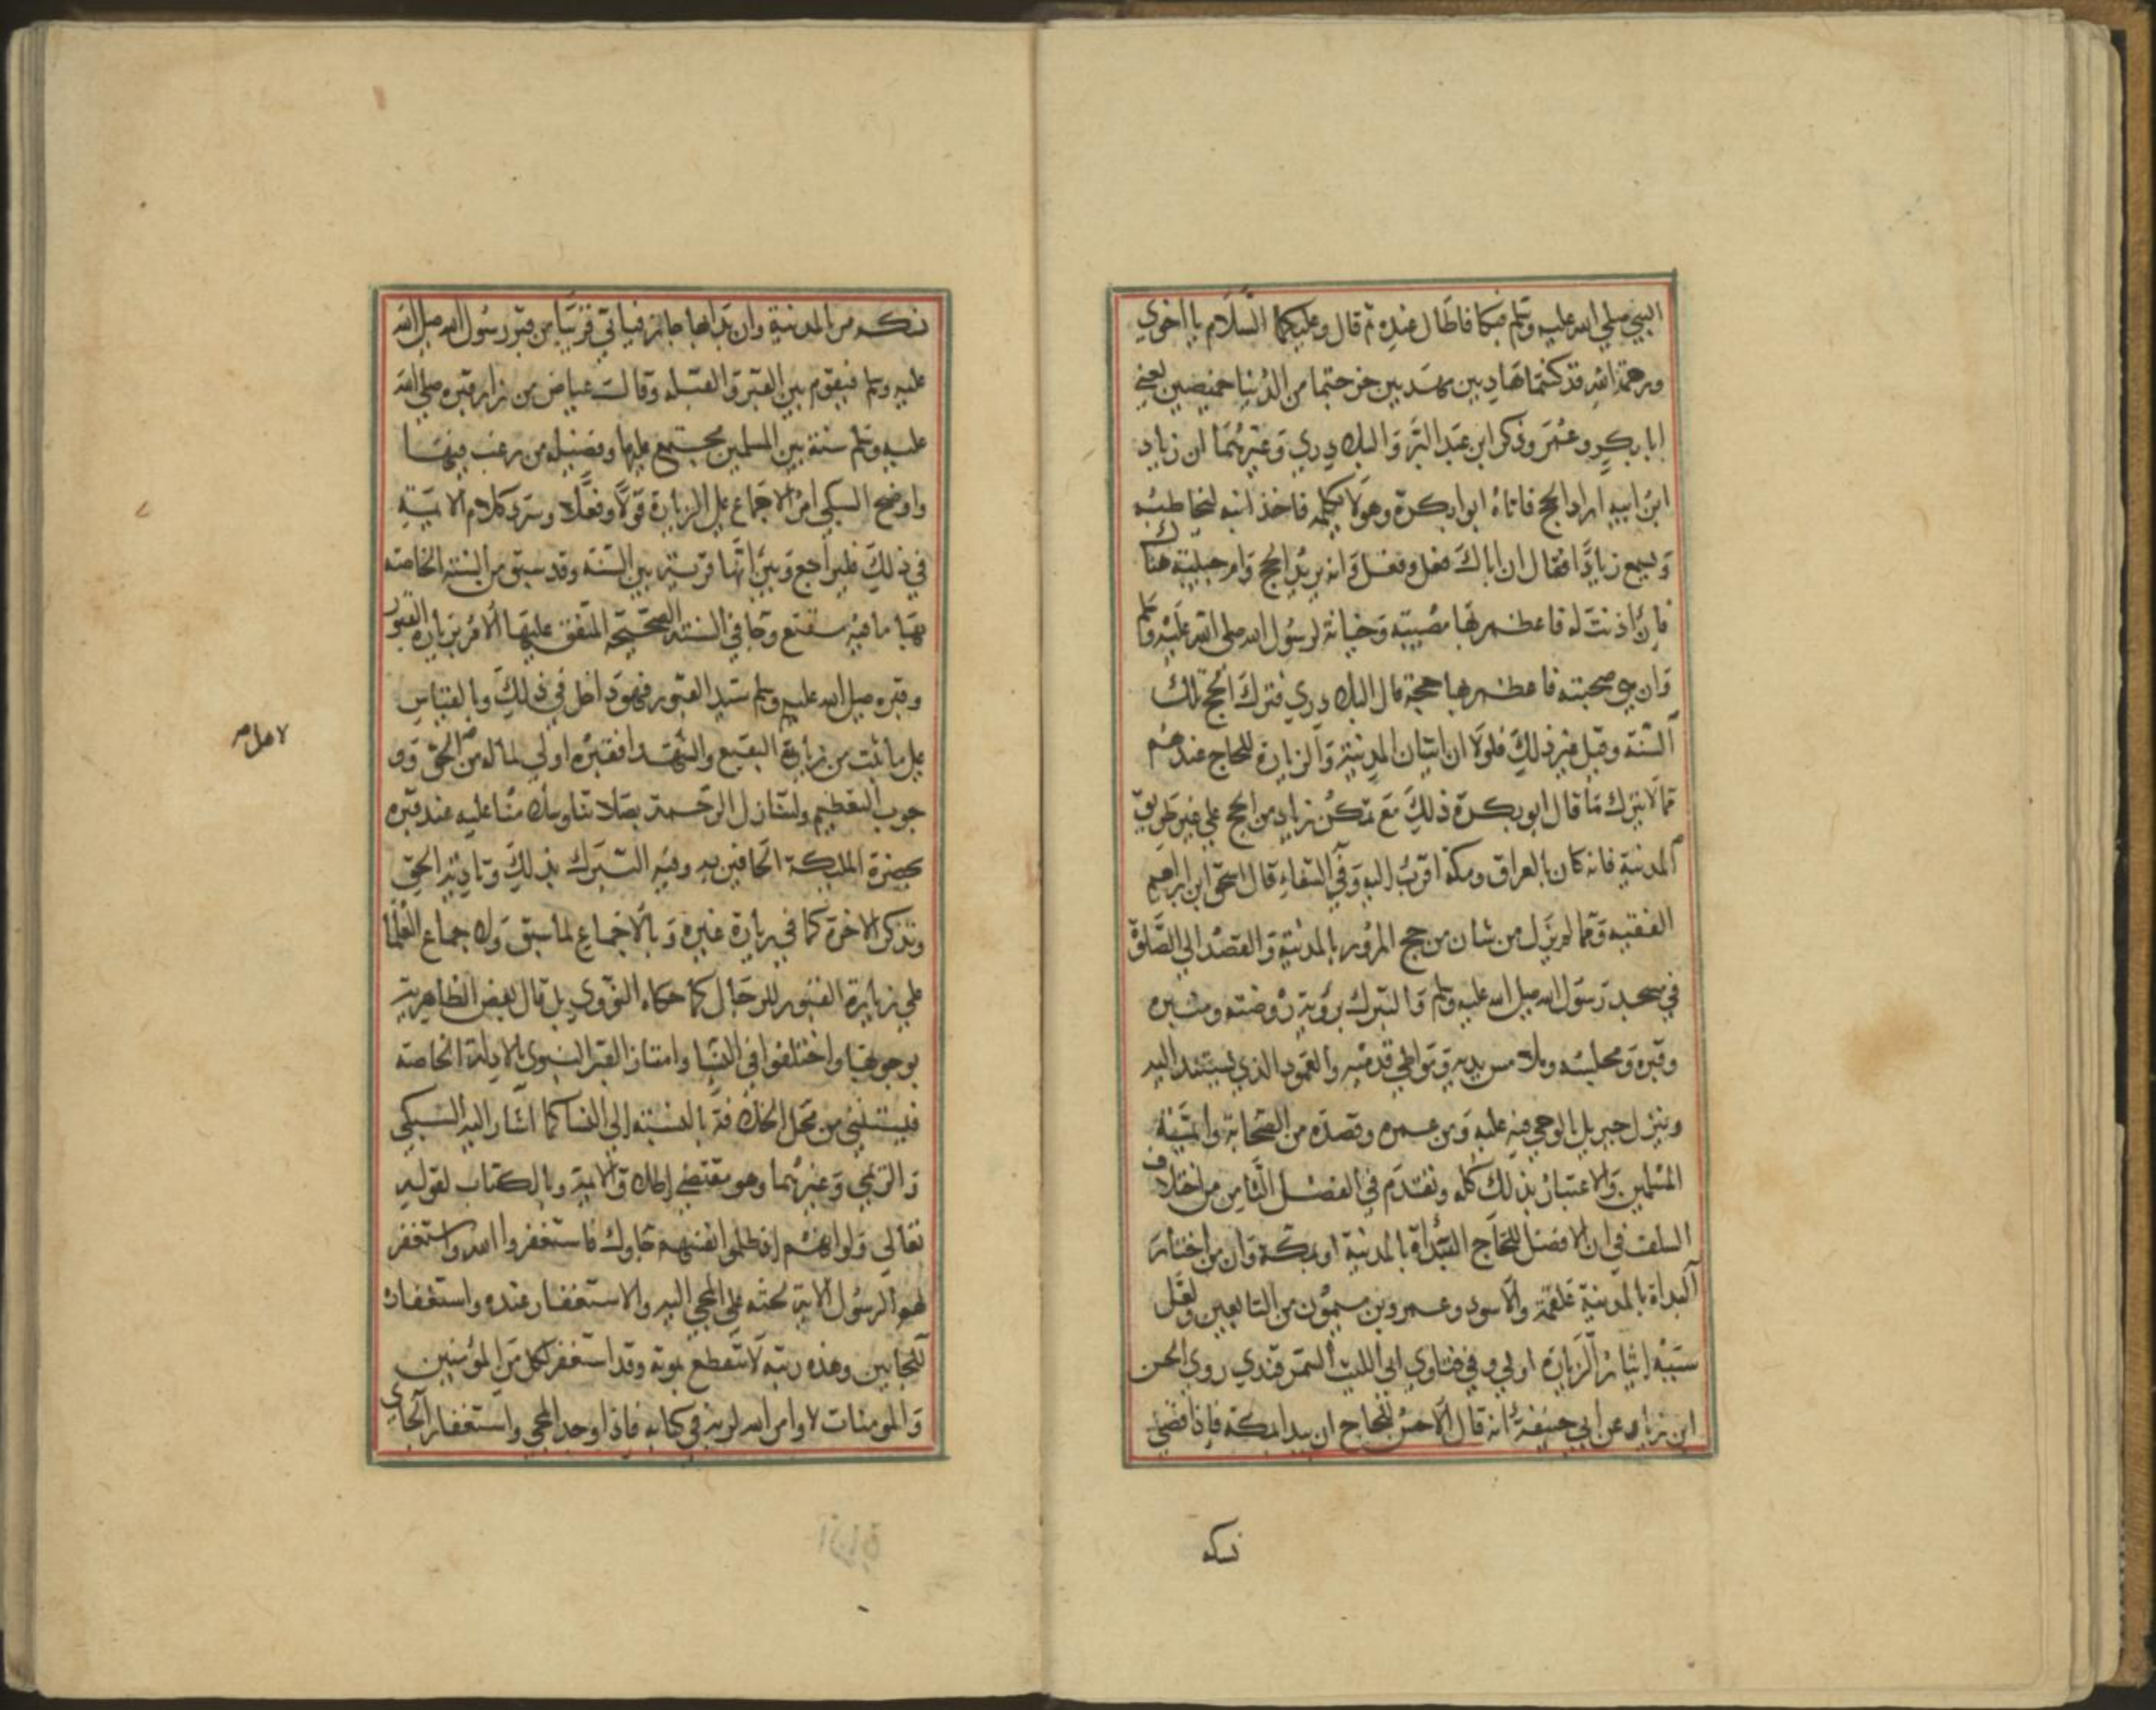 النبي صلي الله عليه وسلم فبكا فاطال عنده ثم قال وعليكما السلام يا اخوي
ورحمة الله قد كنتما هاديين مهديين خرجتما من الدنيا خميصين يعني
ابا بكر وعمر وذكر ابن عبد البر والبلاذري وغيرهما ان زياد
ابن ابيه اراد الحج فاتاه ابوا بكرة وهو لا يكلمه فاخذ ابنه ليخاطبه
ويسمع زيادا فقال ان اباك فعل وفعل وانه يريد الحج وام حبيبة هناك
فان اذنت له فاعظم بها مصيبة وخيانة لرسول الله صلي الله عليه وسلم
وان هي حجبته فاعظم بها حجة قال البلاذري فترك الحج تلك
السنة وقيل غير ذلك فلولا ان اتيان المدينة والزيارة للحاج عندهم
مما لا يترك ما قال ابو بكرة ذلك مع تمكن زياد من الحج علي غير طريق
المدينة فانه كان بالعراق ومكة اقرب اليه وفي الشفاء قال اسحق ابن ابراهيم
الفقيه ومما لم يزل من شان من حج المرور بالمدينة والقصد الي الصلوة
في مسجد رسول الله صلي الله عليه وسلم والتبرك بروية روضته ومنبره
وقبره ومجلسه وملامس يديه ومواطي قدميه والعمود الذي يستند اليه
وينزل جبريل بالوحي فيه عليه ومن عمره وقصده من الصحابة وايمة
المسلمين والاعتبار بذلك كله وتقدم في الفصل الثامن من اختلاف
السلف في ان الافضل للحاج البداة بالمدينة او بمكة وان من اختار
البداة بالمدينة علقمة والاسود وعمرو بن ميمون من التابعين ولعل
سببه ايثار الزيارة اولي وفي فتاوي ابي الليث السمرقندي روي الحسن
ابن زياد عن ابي حنيفة انه قال الاحسن للحاج ان يبدا بمكة فاذا قضي
نسكه
نسكه مر بالمدينة وان بدا بها جاز فياتي قريبا من قبر رسول الله صلي الله
عليه وسلم فيقوم بين القبر والقبلة وقالت عياض من زار قبره صلي الله
عليه وسلم سنة بين المسلمين مجتمع عليها وفضيله من رغب فيها
واوضح السبكي امر الاجماع علي الزيارة قولا وفعلا وسرد كلام الايمة
في ذلك فليراجع وبين انها قربة بين السنة وقد سبق من السنة الخاصة
بها ما فيه مقنع وجا في السنة الصحيحة المتفق عليها الامر بزيارة القبور
وقبره صلي الله عليه وسلم سيد القبور فهو داخل في ذلك وبالقياس
علي ما ثبت من زيارة البقيع والشهدا فقبره اولي لما له من الحق وو
جوب التعظيم ولتنازل الرحمة بصلاتنا وسلامنا عليه عند قبره
بحضرة المليكة الحافين به وفيه التبرك بذلك وتادية الحق
وتذكر الاخرة كما في زيارة غيره وبالاجماع لما سبق ولاجماع العلما
علي زيارة القبور للرجال كما حكاه النووي بل قال بعض الظاهرية
بوجوبها واختلفوا في النسا وامتاز القبر النبوي بالادلة الخاصة
فيستثني من محل الخلاف بالنسبة الي النسا كما اشار اليه السبكي
والريمي وغيرهما وهو مقتضي اطلاق الايمة وبالكتاب لقوله
تعالي ولو انهم اذ ظلموا انفسهم جاوك فاستغفروا الله واستغفر
لهم الرسول الاية لحثه علي المجي اليه والاستغفار عنده واستغفاره
للجايين وهذه رتبة لا تنقطع بموته وقد استغفر لكل من المومنين
والمومنات لاوامر الله له به في كتابه فاذا وجد المجي واستغفار الجاي